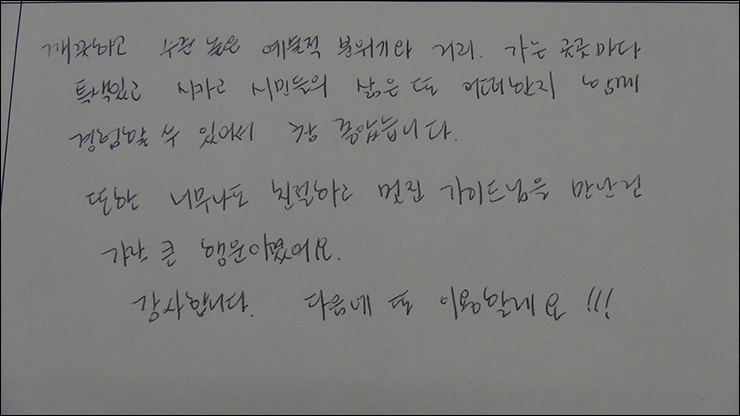 깨끗하고 수준 높은 예술적 분위기와 거리. 가는 곳곳마다
특색있고 시카고 시민들의 삶은 또 어떠한지 함께
경험할 수 있어서 참 좋았습니다.
또한 너무나도 친절하고 멋진 가이드님을 만난건
가장 큰 행운이였어요.
감사합니다. 다음네 또 이용할래요!!!